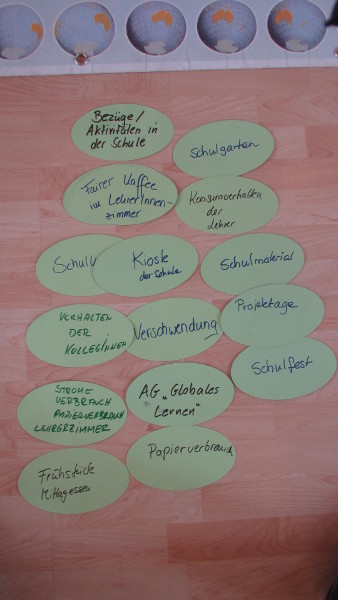 Bezüge/
Aktivitäten in
der Schule
Schulgarten
Fairer Kaffee
im LehrerInnen-
zimmer
Konsumverhalten
der
Lehrer
Kiosk
der Schule
Schulmaterial
VERHALTEN
DER
KOLLEGINNEN
Verschwendung
Projektage
Schulfest
STROM-
VERBRAUCH
PAPIERVERBRAUCH
LEHRERZIMMER
AG „Globales
Lernen“
Papierverbrauch
Frühstück
Mittagessen